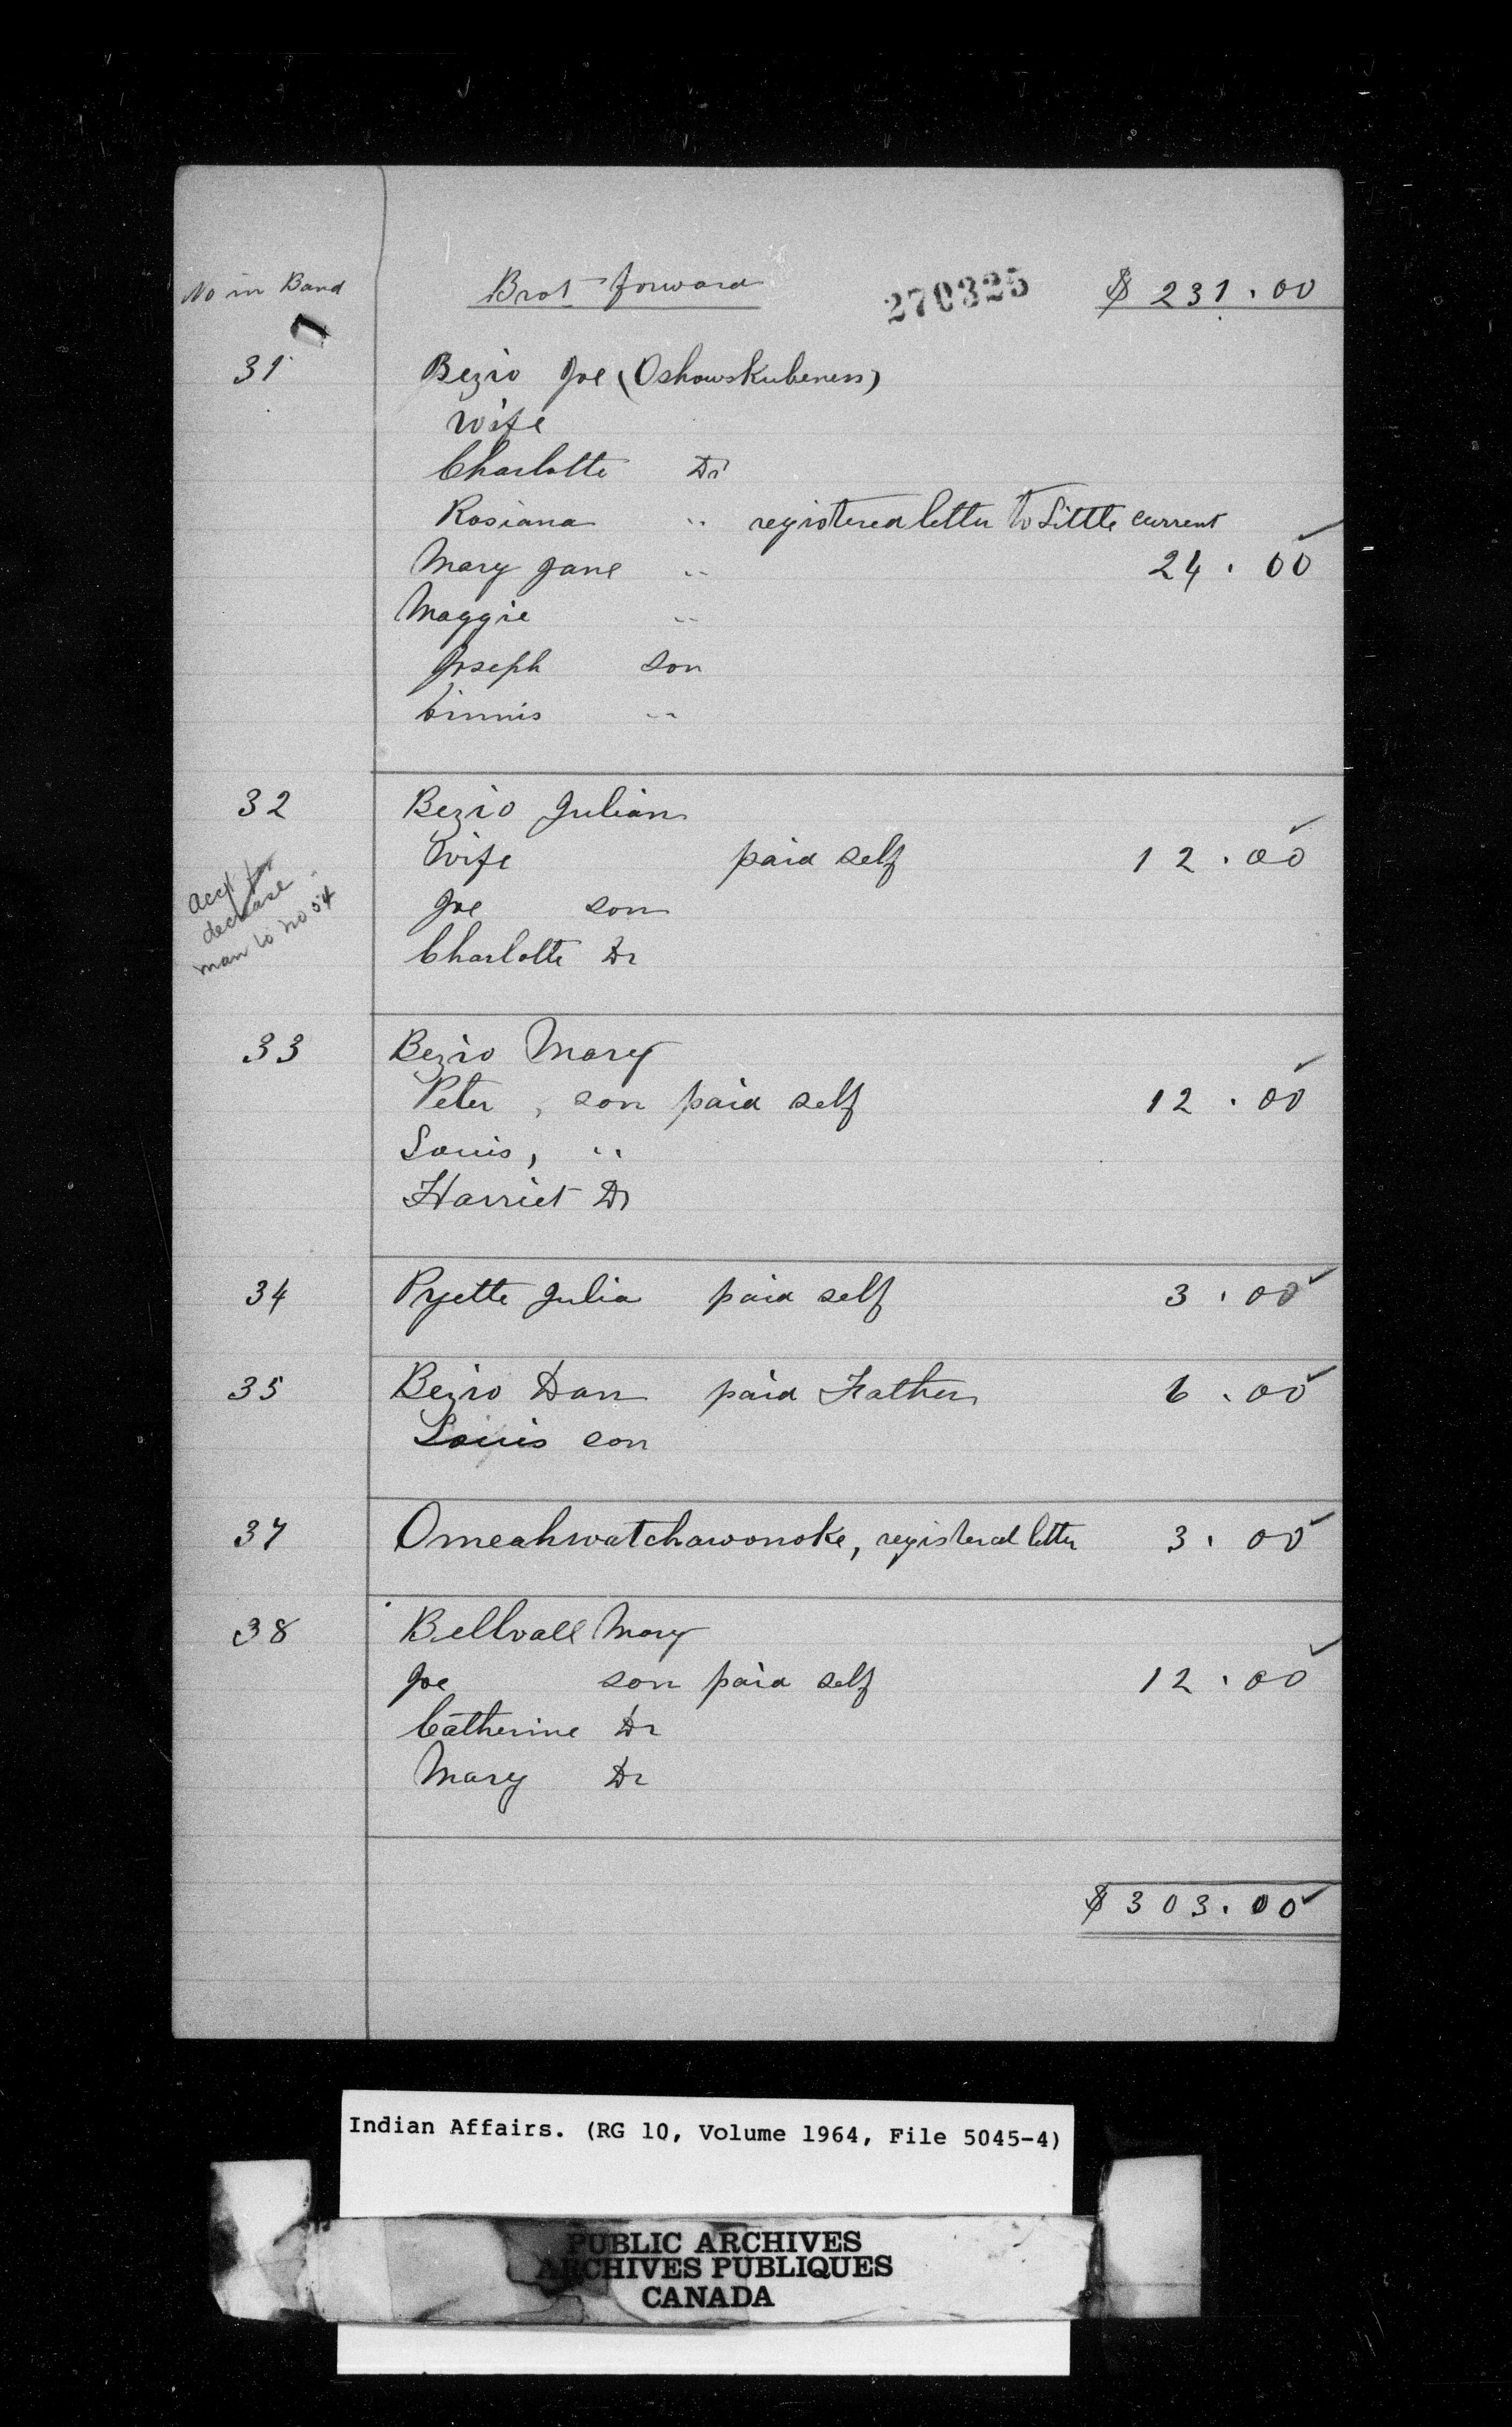 No in Band Brot forward 270325 $ 231.00
31 Bezio Joe (Oshowskubeness)
Wife
Charlotte Dr
Rosiana " registered letter to Little current
Mary Jane " 24.00
Maggie "
Joseph son
"
32 Bezio Julian
Wife paid self 12.00
Acct for
decrease
man to no 54
Joe son
Charlotte Dr
33 Bezio Mary
Peter, son paid self 12.00
Louis, "
Harriet Dr
34 Pyette Julia paid self 3.00
35 Bezio Dan paid Father 6.00
Louis son
37 Omeahwatchawonoke, registered letter 3.00
38 Bellvall Mary
Joe son paid self 12.00
Catherine Dr
Mary Dr
$ 303.00
Indian Affairs. (RG 10, Volume 1964, File 5045-4)
PUBLIC ARCHIVES
ARCHIVES PUBLIQUES
CANADA